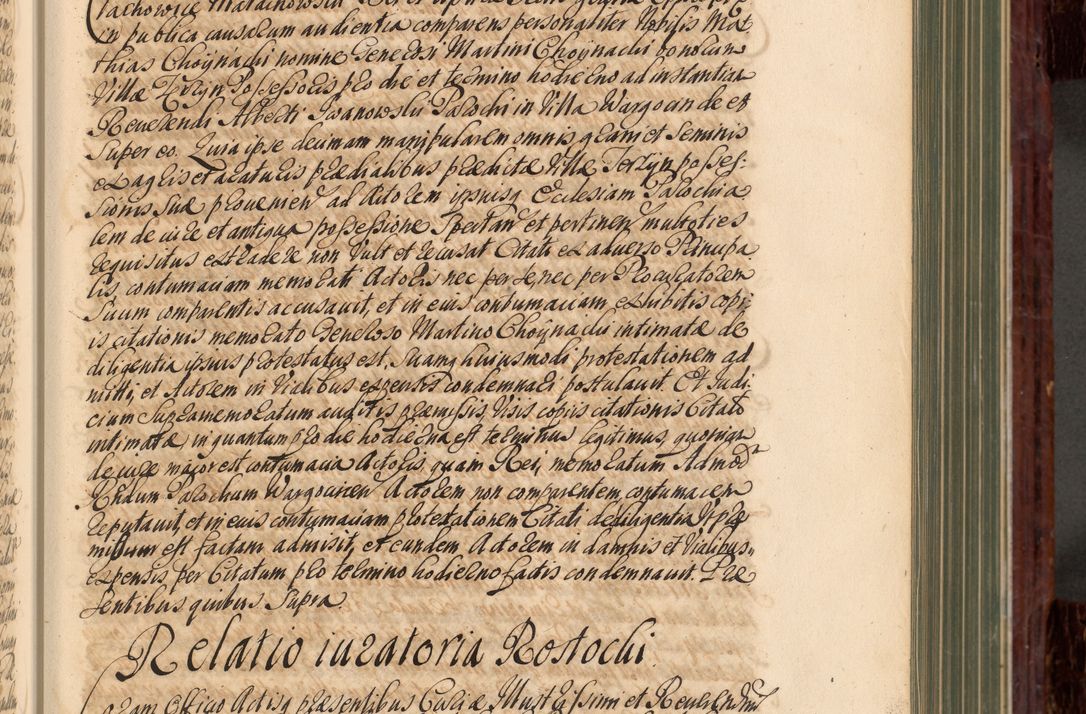 in publica causarum audientia comparens personaliter Nobilis Mat
thias Choynacki nomine Generosi Martini Choynacki bonorum
Villæ Terzyn Possessoris pro die et termino hodierno ad instantiam
Reverendi Alberti Iwanowski Parochi in Villa Wargocin de et
super eo. Quia ipse decimam manipularem omnis grani et seminis
ex agris et araturis prædialibus prædictæ Villæ Terzyn posses:
sionis suæ provenien ad Actorem ipsiusq Ecclesiam Parochia
lem de iure et antiqua possessione spectan et pertinen multoties
requisitus extradere non vult et recusat Citati ex adverso Principa
lis contumaciam memorati Actoris nec per se, nec per Procuratorem
suum comparentis accusavit, et in eius contumaciam exhibitis copi
is citationis memorato Generoso Martino Choynacki intimatæ de
diligentia ipsius protestatus est, suamq huiusmodi protestationem ad
mitti, et Actorem in Vialibus expensis condemnari postulavit. Et Iudi
cium supramemoratum auditis præmissis Visis copiis citationis Citato
intimatæ, in quantum pro die hodierna est terminus legitimus, quoniam
de iure major est contumacia Actoris, quam Rei, memoratum Admod
Rndum Parochum Wargocinen Actorem non comparentem, contumacem
reputavit, et in eius contumaciam protestationem Citati de diligentia ut præ
missum est factam admisit, et eundem Actorem in damnis et Vialibus,
expensis per Citatum pro termino hodierno factis condemnavit. Præ
sentibus quibus supra.
Relatio iuratoria Rostochi
Coram Officio Actisq præsentibus Curiæ Illustrissimi et Reverendmi